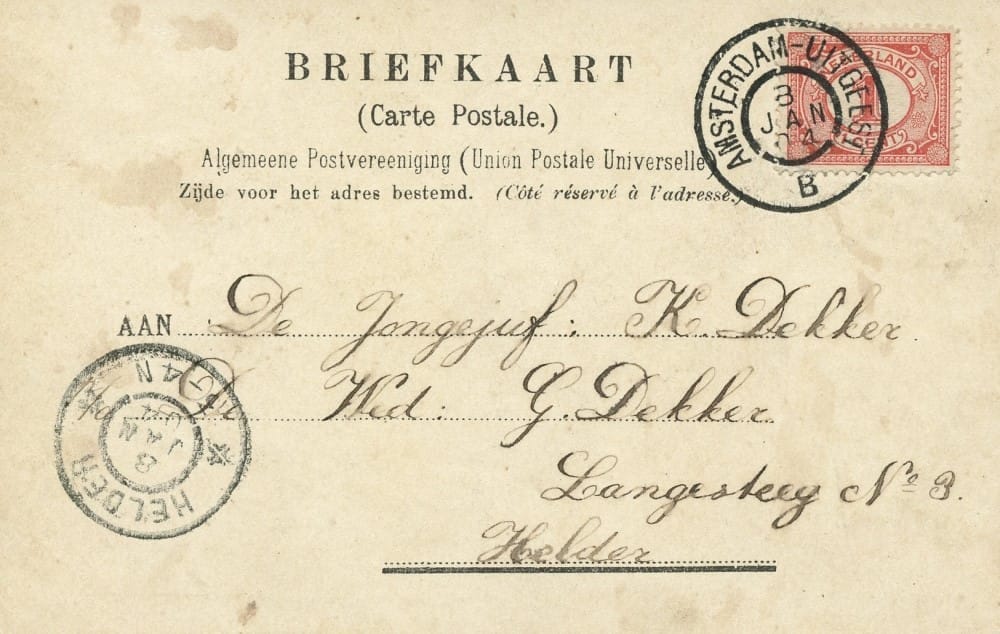 BRIEFKAART
(Carte Postale.)
Algemeene Postvereeniging (Union Postale Universelle)
Zijde voor het adres bestemd. (Côté réservé à l'adresse.)
AMSTERDAM-UITGEEST
8
JAN
04
B
NEDERLAND
1
CENT
AAN De Jongejuf: K. Dekker
Wed: G. Dekker
Langesteeg No 3.
Helder
HELDER
8
JAN
04
4N